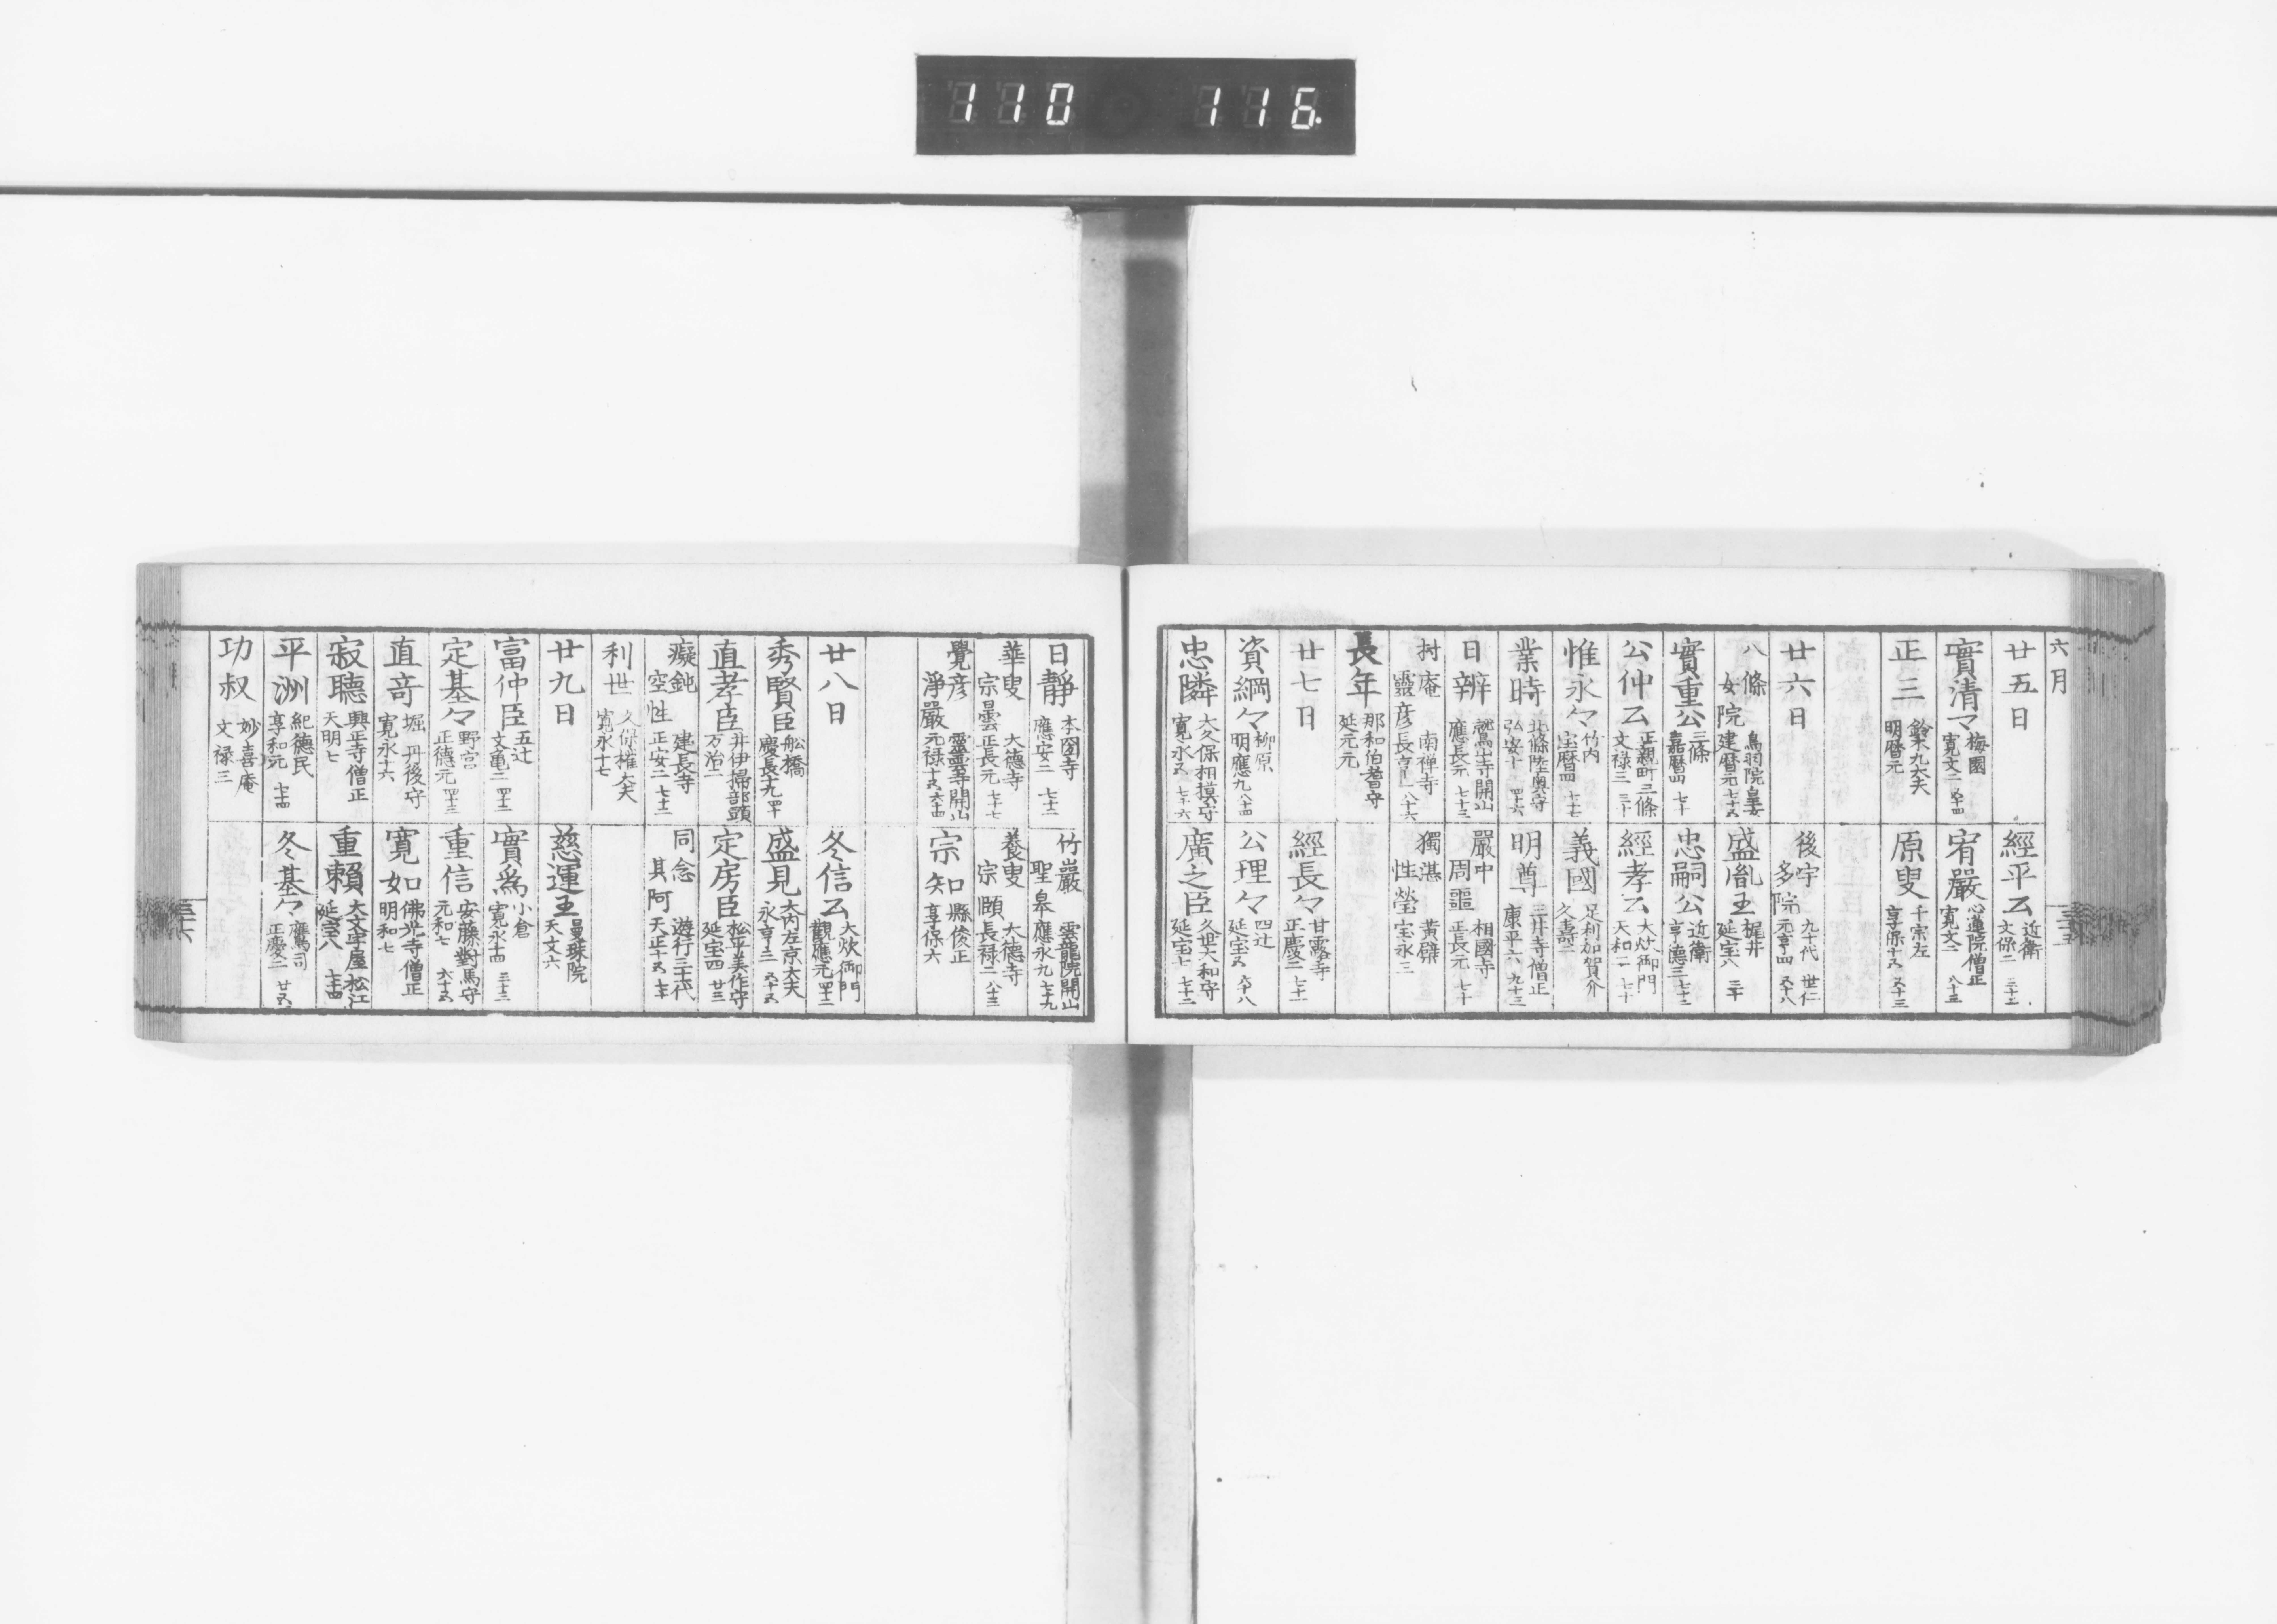 110 116.
六月
廿五日
經平公 近衛 文保二 三十二
實清マ 梅園 寛文二 五十四
宥嚴 心蓮院僧正 寛文二 八十三
正三 鈴木九太夫 明暦元
原叟 千宗左 享保十五 五十三
廿六日
後宇多院 九十代 世仁 元亨四 五十八
八條女院 鳥羽院皇女 建暦元 七十五
盛胤王 梶井 延宝八 三十
實重公 三條 嘉暦四 七十
忠嗣公 近衛 享德三 七十三
公仲公 正親町三條 文禄三 三十
經孝公 大炊御門 天和二 七十
惟永々 竹内 宝暦四 七十七
義國 足利加賀介 久壽二
業時 北條陸奥守 弘安十 四十六
明尊 三井寺僧正 康平六 九十三
日辨 鷲山寺開山 應長元 七十三
嚴中周噩 相國寺 正長元 七十
村庵靈彦 南禅寺 長享二 八十六
獨湛性瑩 黄檗 宝永三
長年 那和伯耆守 延元元
廿七日
經長々 甘露寺 正慶二 七十一
資綱々 柳原 明應九 八十四
公理々 四辻 延宝五 六十八
忠隣 大久保相摸守 寛永五 七十六
廣之臣 久世大和守 延宝七 七十二
日靜 本圀寺 應安二 七十二
竹巖聖皋 雲龍院開山 應永九 七十九
華叟宗曇 大德寺 正長元 七十七
養叟宗頤 大德寺 長禄二 八十三
覺彦淨嚴 靈雲寺開山 元禄十五 六十四
宗知 縣俊正 享保六
廿八日
冬信公 大炊御門 觀應元 四十二
秀賢臣 舩橋 慶長十九 四十
盛見 大内左京大夫 永享三 五十五
直孝臣 井伊掃部頭 万治二
定房臣 松平美作守 延宝四 廿三
癡鈍空性 建長寺 正安二 七十二
同念其阿 遊行三十代 天正十五 七十
利世 久保權大夫 寛永十七
廿九日
慈運王 曼珠院 天文六
富仲臣 五辻 文亀二 四十二
實爲 小倉 寛永十四 三十三
定基々 野宮 正德元 四十三
重信 安藤對馬守 元和七 六十五
直竒 堀丹後守 寛永十六
寛如 佛光寺僧正 明和七
寂聽 興正寺僧正 天明七
重賴 大文字屋 松江 延宝八 七十四
平洲 紀德民 享和元 七十四
冬基々 鷹司 正慶二 廿五
功叔 妙喜庵 文禄三
三十五
三十六